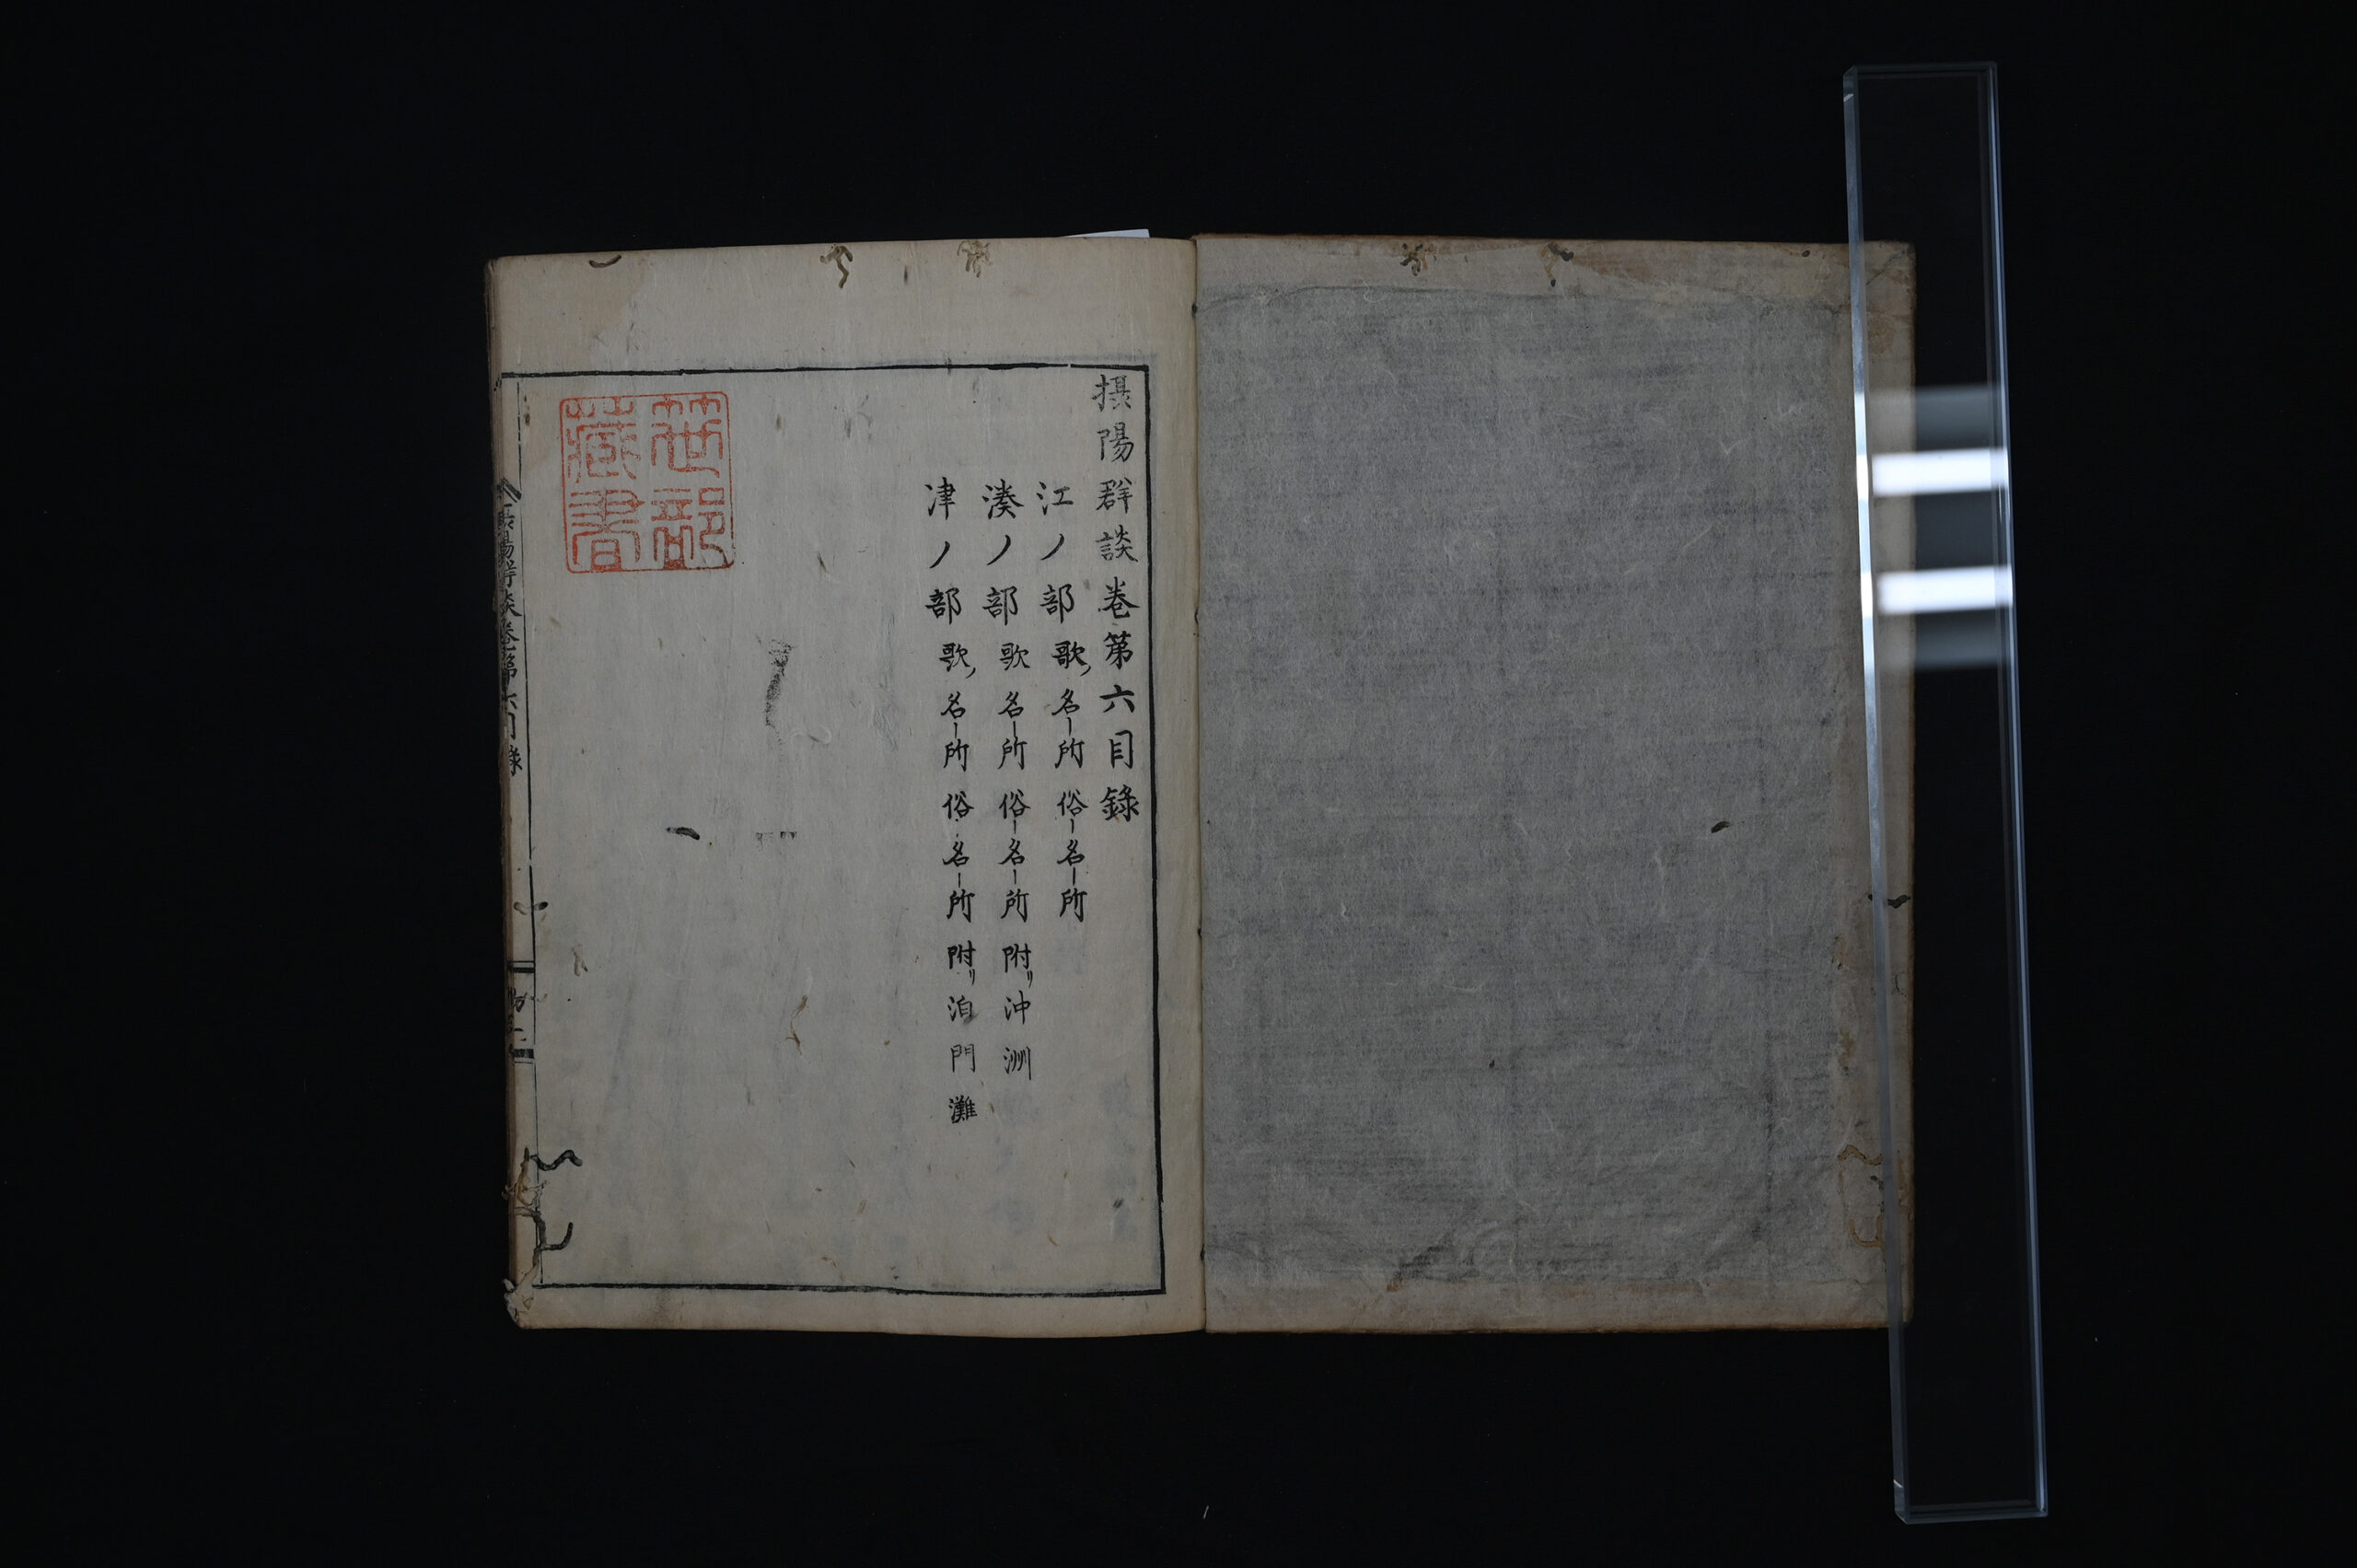 摂陽群談巻第六目錄
江ノ部歌名所俗名所
湊ノ部歌名所俗名所附リ沖洲
津ノ部歌名所俗名所附リ泊門灘
笹部
藏書
摂陽群談巻第六目録